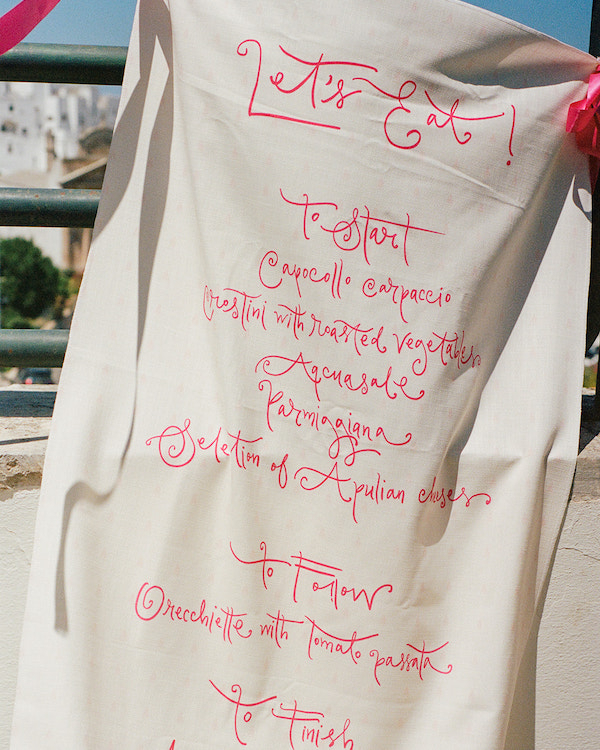 Let's Eat!
to Start
Capocollo carpaccio
Crostini with roasted vegetables
Aqcuasale
Parmiggiana
Seletion of Apulian cheses
to Follow
Orecchiette with Tomato passata
to Finish